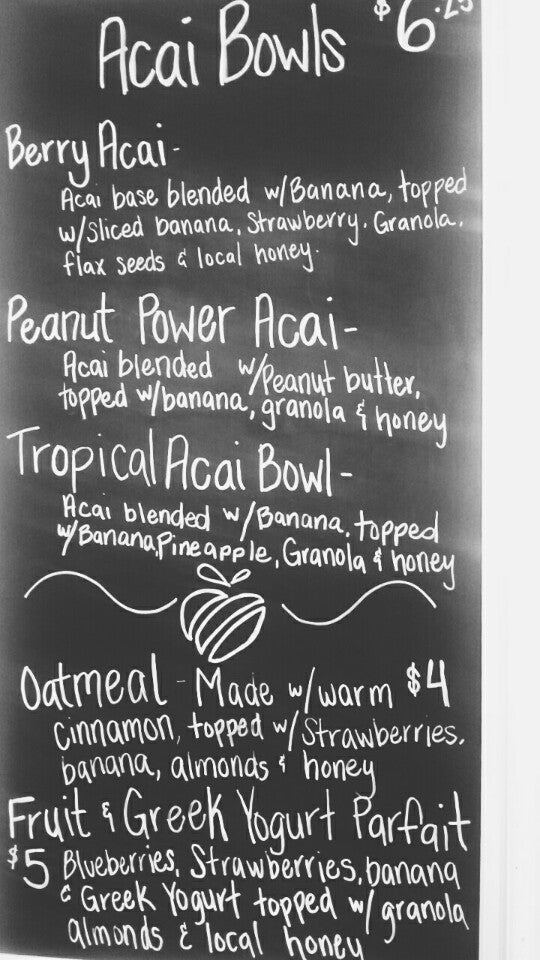 Acai Bowls $6.25
Berry Acai-
Acai base blended w/Banana, topped
w/sliced banana, Strawberry, Granola,
flax seeds & local honey.
Peanut Power Acai-
Acai blended w/Peanut butter,
topped w/banana, granola & honey
Tropical Acai Bowl-
Acai blended w/Banana, topped
w/Banana, Pineapple, Granola & honey
Oatmeal - Made w/warm $4
cinnamon, topped w/Strawberries,
banana, almonds & honey
Fruit & Greek Yogurt Parfait
$5 Blueberries, Strawberries, banana
& Greek Yogurt topped w/ granola
almonds & local honey